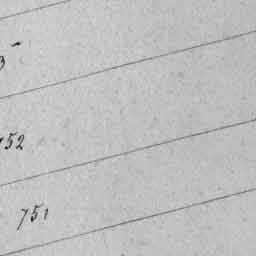 3
752
751